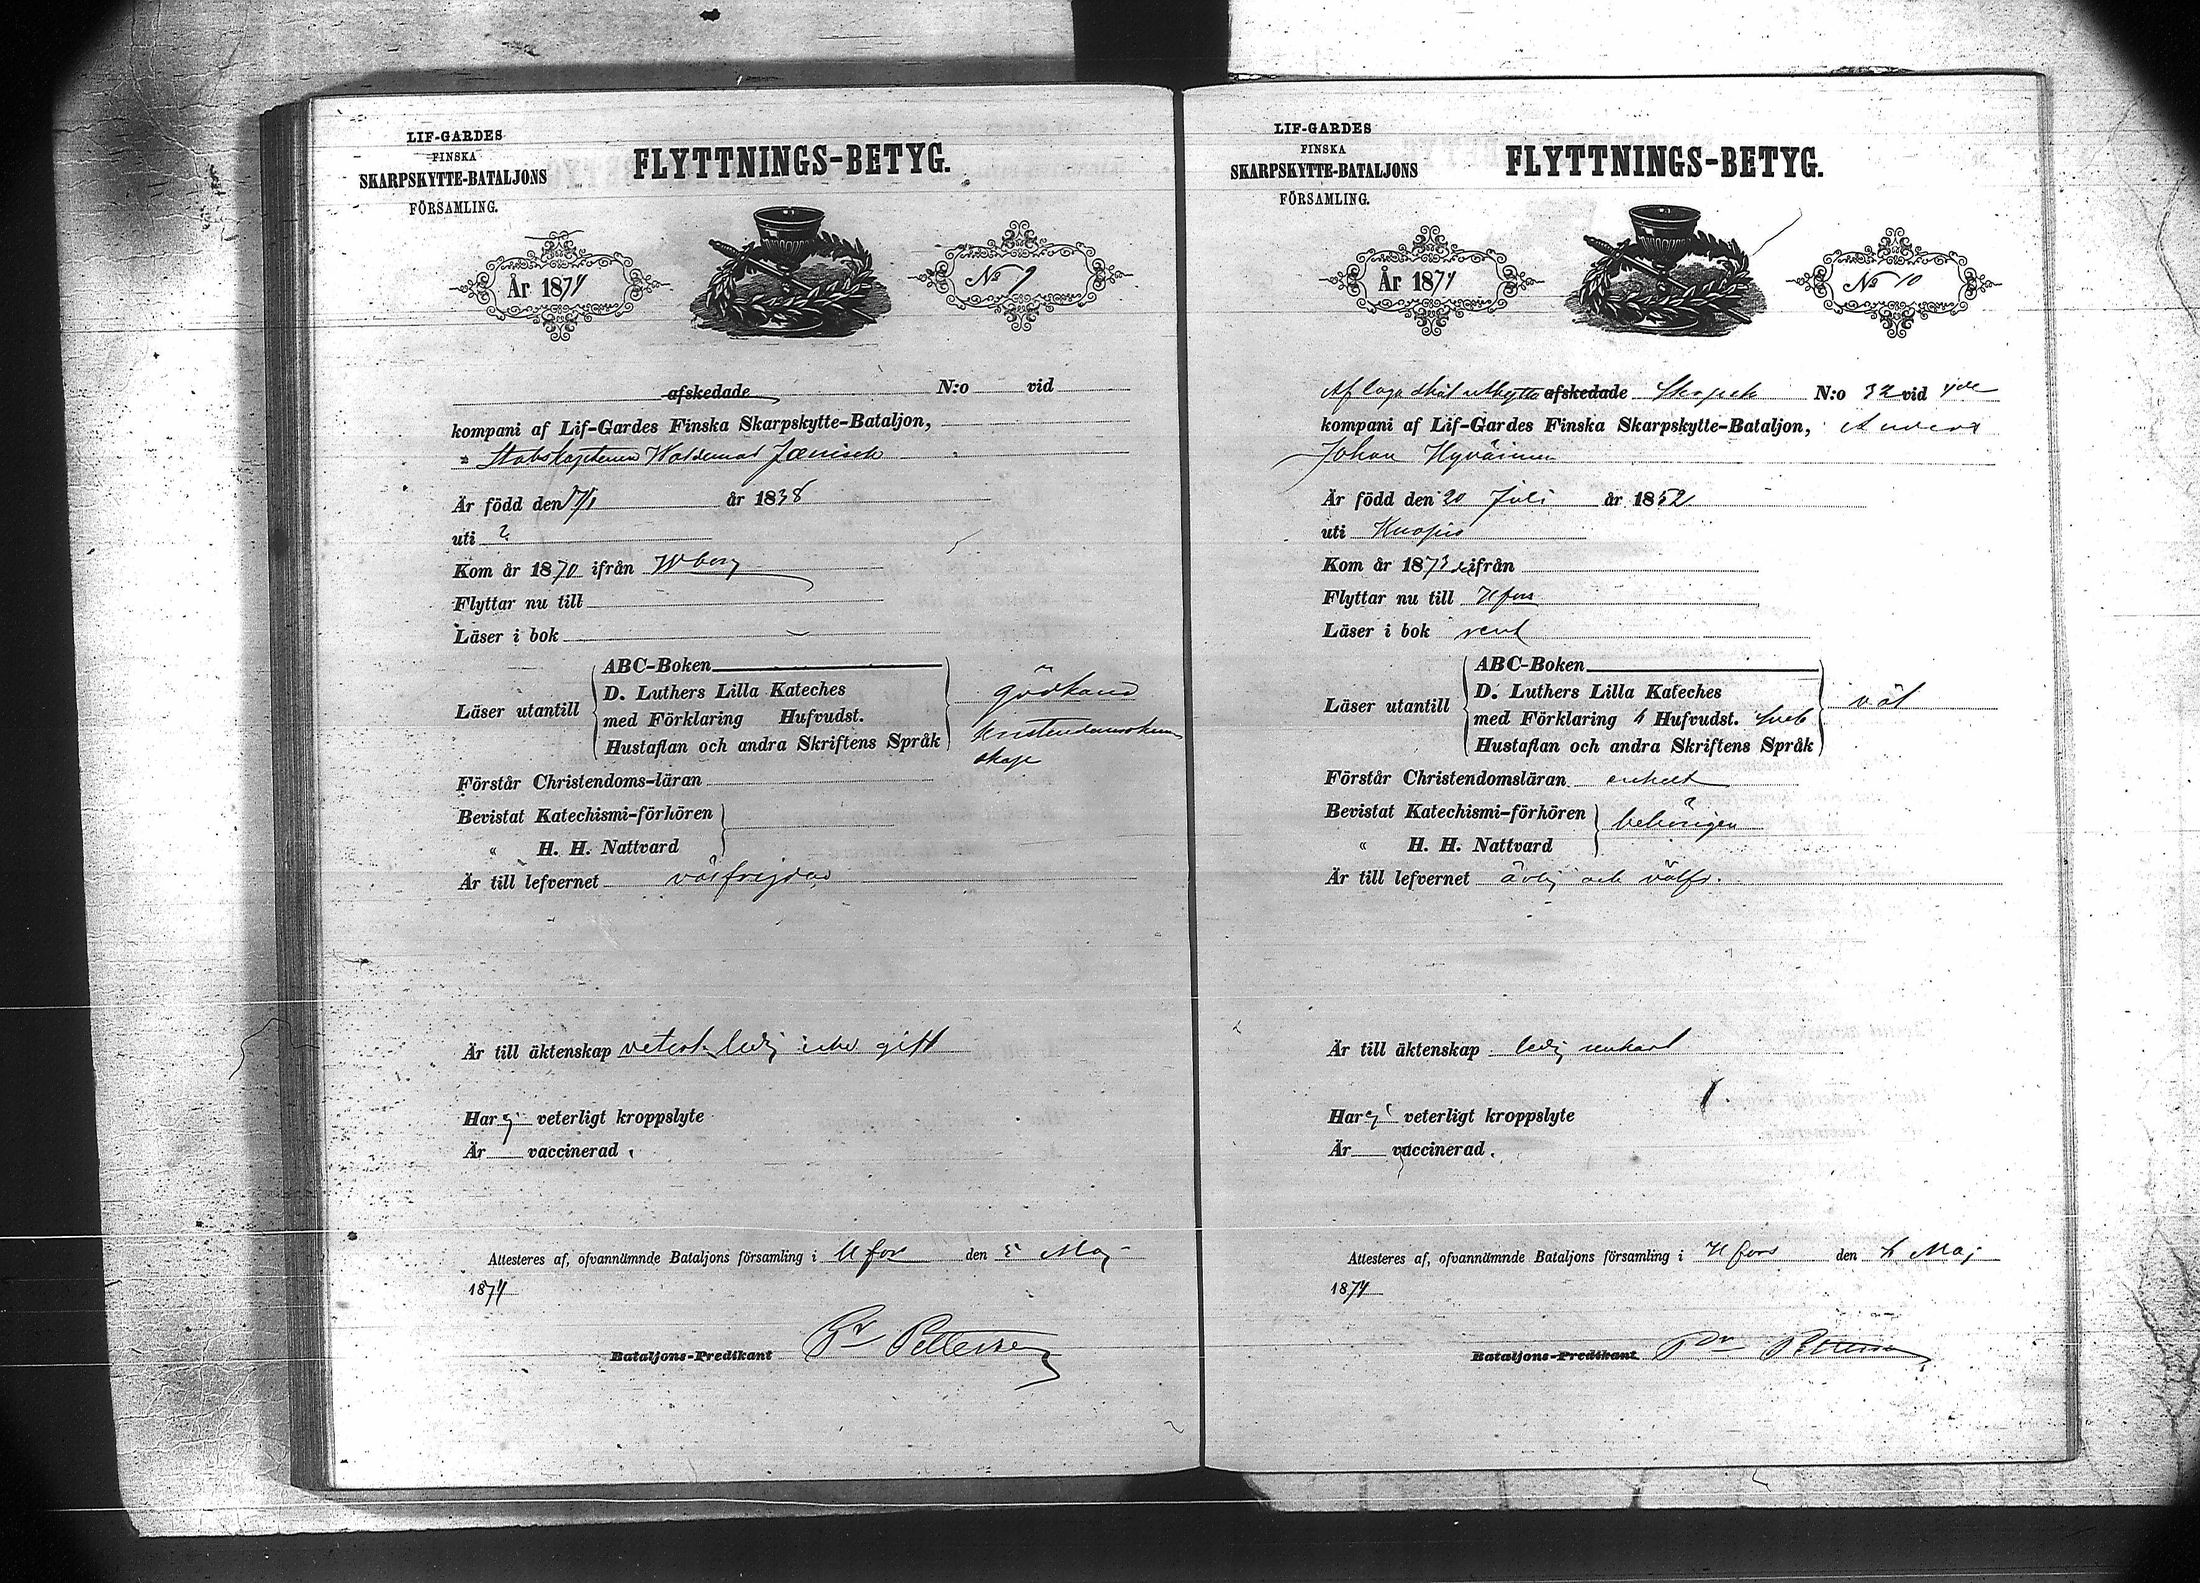 LIF-GARDES
FINSKA
SKARPSKYTTE-BATALJONS
FÖRSAMLING.
FLYTTNINGS-BETYG.
År 1874
No 9
afskedade N:o vid
kompani af Lif-Gardes Finska Skarpskytte-Bataljon,
Stabskaptenen Woldemar Jænisch
Är född den 17/1 år 1838
uti ?
Kom år 1870 ifrån Wborg
Flyttar nu till
Läser i bok
Läser utantill
ABC-Boken
D. Luthers Lilla Kateches
med Förklaring Hufvudst.
Hustaflan och andra Skriftens Språk
godkänd
kristendomskun
skap
Förstår Christendoms-läran
Bevistat Katechismi-förhören
" H. H. Nattvard
Är till lefvernet välfrejdad
Är till äktenskap veterl. ledig icke gift
Har ej veterligt kroppslyte
Är vaccinerad.
Attesteres af, ofvannämnde Bataljons församling i Hfors den 5 Maj
1874
Bataljons-Predikant Pr Pettersson
LIF-GARDES
FINSKA
SKARPSKYTTE-BATALJONS
FÖRSAMLING.
FLYTTNINGS-BETYG.
År 1874
No 10
Af laga skäl utbytta afskedade Skarpsk N:o 32 vid 4de
kompani af Lif-Gardes Finska Skarpskytte-Bataljon, Anders
Johan Hyvärinen
Är född den 20 Juli år 1852
uti Kuopio
Kom år 1873 ifrån
Flyttar nu till Hfors
Läser i bok rent
Läser utantill
ABC-Boken
D. Luthers Lilla Kateches
med Förklaring Hufvudst.
Hustaflan och andra Skriftens Språk
väl
Förstår Christendomsläran enkelt
Bevistat Katechismi-förhören
" H. H. Nattvard
behörigen
Är till lefvernet ärlig och välfr.
Är till äktenskap ledig
Har ej veterligt kroppslyte
Är vaccinerad.
Attesteres af, ofvannämnde Bataljons församling i Hfors den Maj
1874
Bataljons-Predikant Pr Pettersson